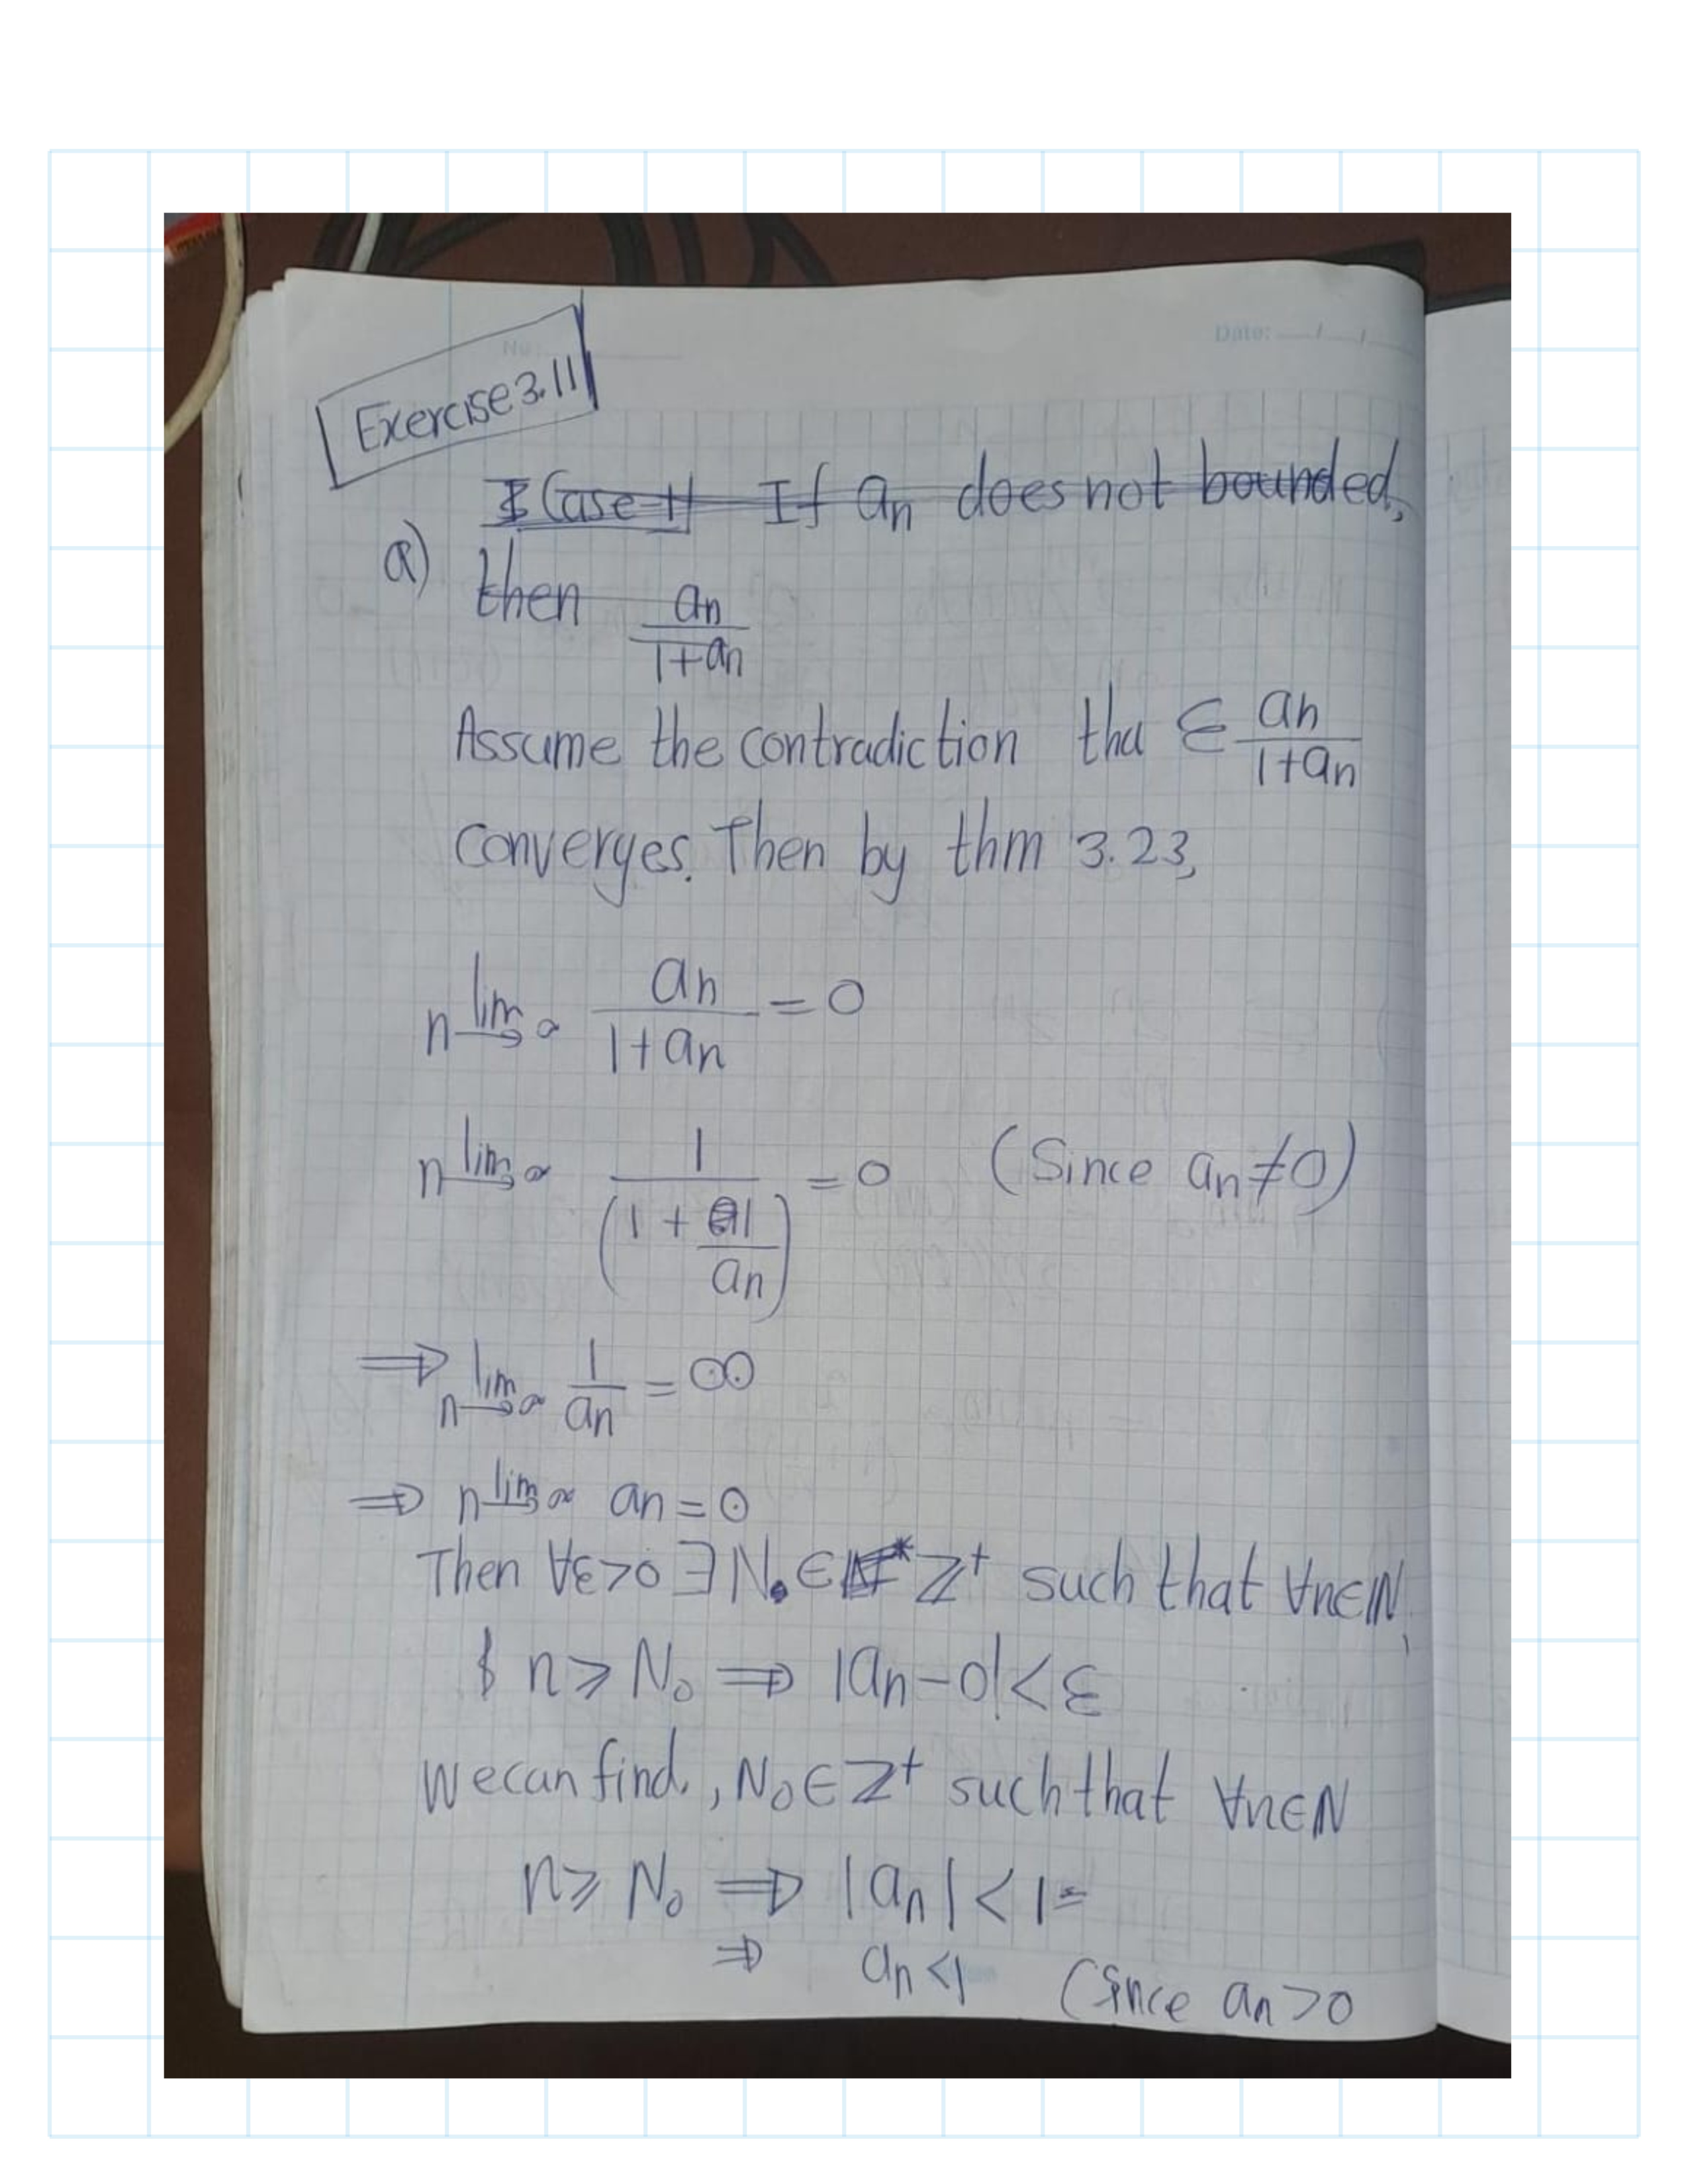 No:
Date: __/__/__
Exercise 3.11
I Case-1 If an does not bounded,
a) then an/(1+an)
Assume the contradiction tha Σ an/(1+an)
converges. Then by thm 3.23,
lim n→∞ an/(1+an) = 0
lim n→∞ 1/(1+1/an) = 0 (Since an≠0)
⇒ lim n→∞ 1/an = ∞
⇒ lim n→∞ an = 0
Then ∀ε>0 ∃N₀∈ Z⁺ such that ∀n∈N,
n ≥ N₀ ⇒ |an-0| < ε
We can find, N₀∈Z⁺ such that ∀n∈N
n ≥ N₀ ⇒ |an| < 1
⇒ an<1 (Since an>0